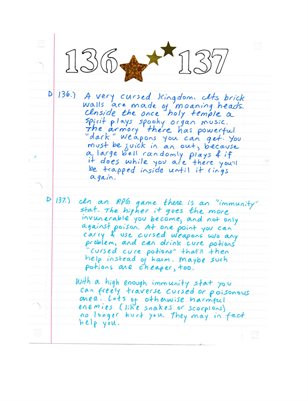 136 137
D 136.) A very cursed kingdom. Its brick
walls are made of moaning heads.
Inside the once holy temple a
spirit plays spooky organ music.
The armory there has powerful
"dark" weapons you can get. You
must be quick in an out, because
a large bell randomly plays & if
it does while you are there you'll
be trapped inside until it rings
again.
D 137.) In an RPG game there is an "immunity"
stat. The higher it goes the more
invunerable you become, and not only
against poison. At one point you can
carry & use cursed weapons w/o any
problem, and can drink cure potions
"cursed cure potions" that'll then
help instead of harm. Maybe such
potions are cheaper, too.
With a high enough immunity stat you
can freely traverse cursed or poisonous
area. Lots of otherwise harmful
enemies (like snakes or scorpions)
no longer hurt you. They may in fact
help you.